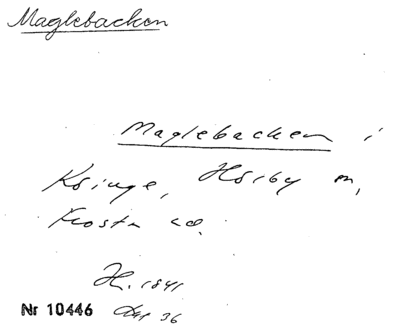 Maglebacken
Maglebacken i
Kringe, Hörby sn,
Frosta hd.
H. 1841
Nr 10446 Akt 36